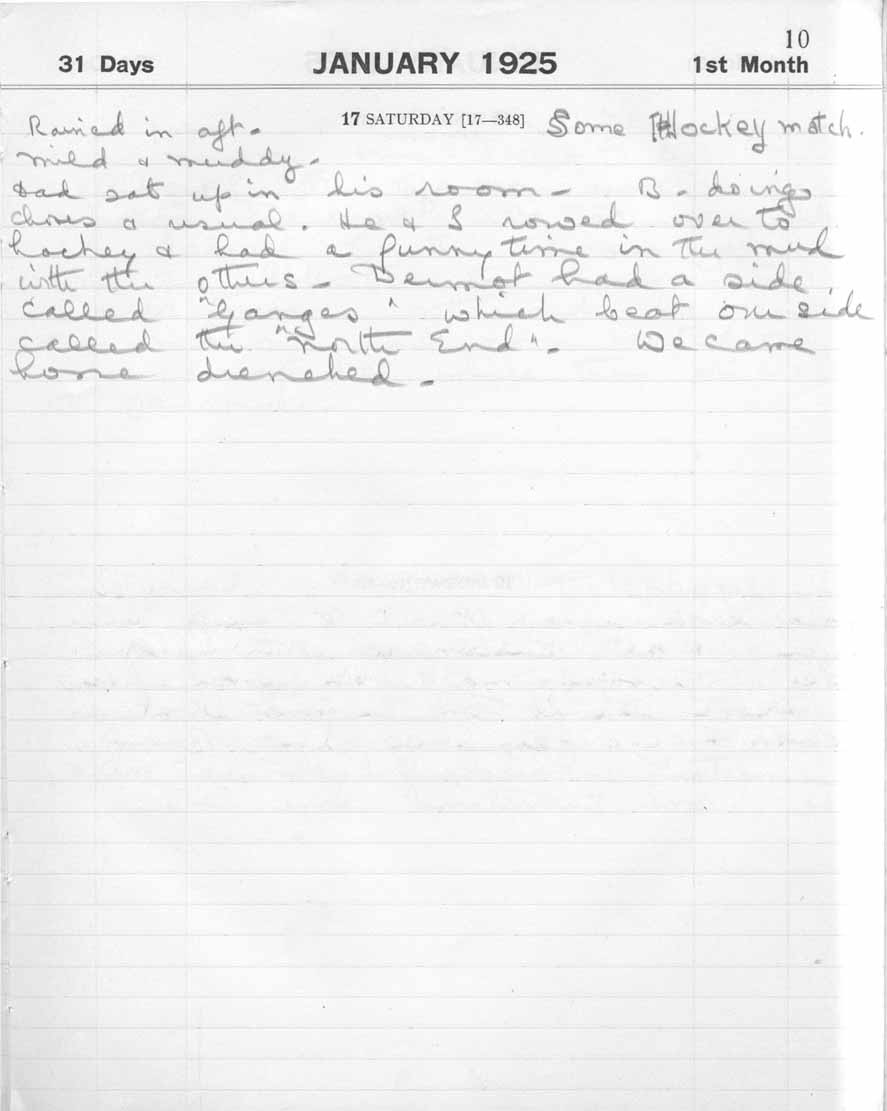 10
31 Days JANUARY 1925 1st Month
17 SATURDAY [17—348]
Rained in aft. Some Hockey match.
mild & muddy.
Dad sat up in his room - B. doing
chores as usual. He & I rowed over to
hockey & had a funny time in the mud
with the others - Dermot had a side
called "Ganges" which beat our side
called the "North End". We came
home drenched.